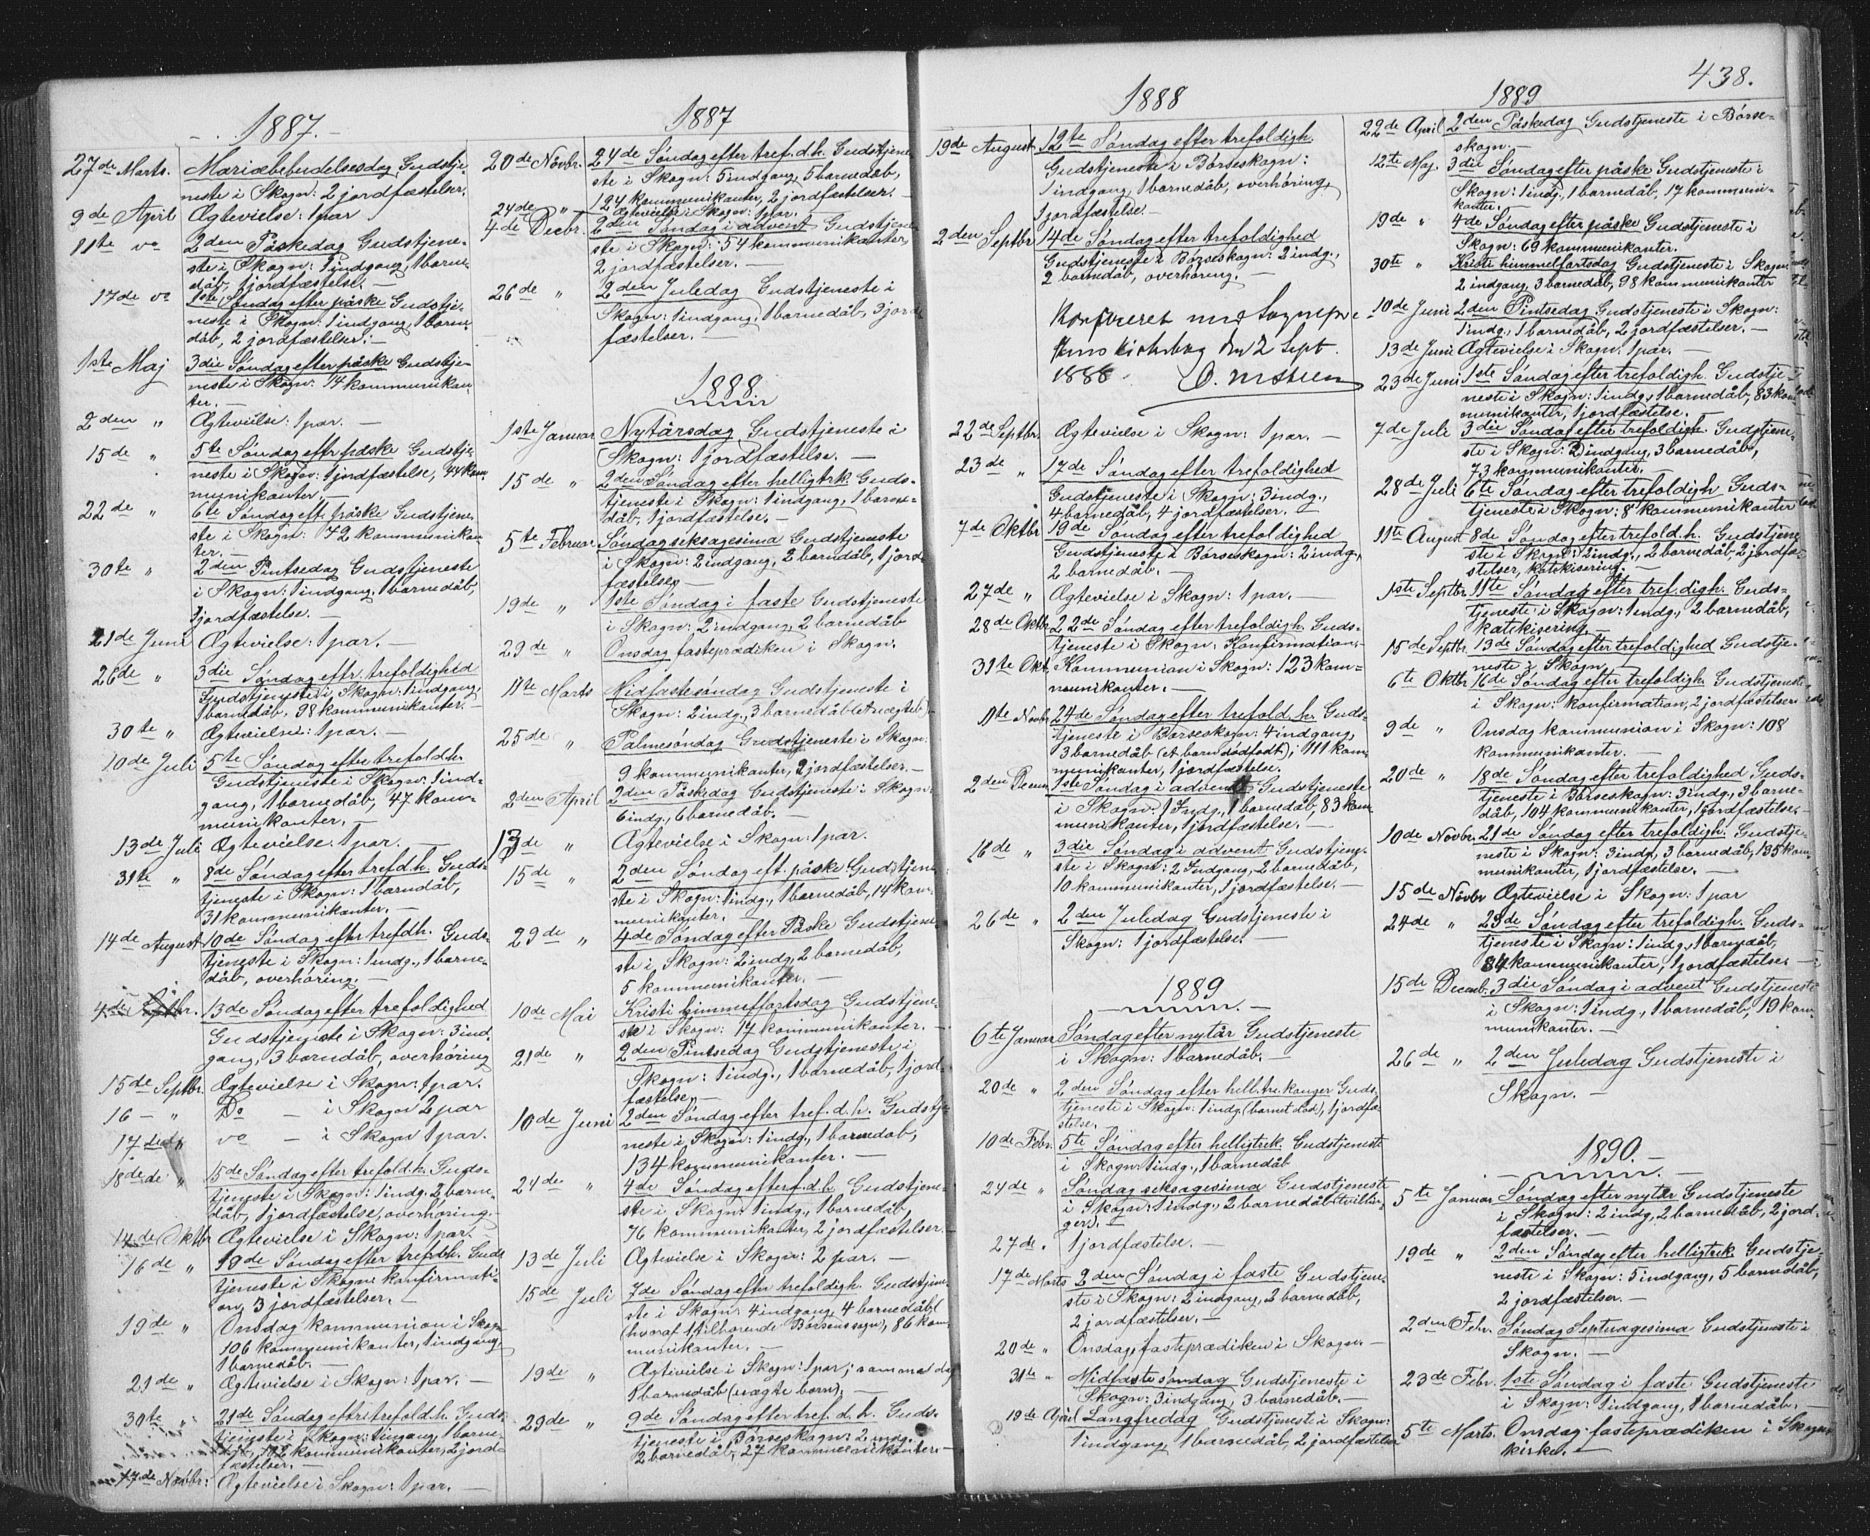 438.
1887.
27de Marts. Mariæbebudelsesdag Gudstje-
neste i Skogn: 2 jordfæstelser.
9de April Ægtevielse: 1 par
11te " 2den Påskedag Gudstjene-
ste i Skogn: 1 indgang, 1 barne-
dåb, 1 jordfæstelse. —
17de " 1ste Søndag efter påske Gudstje-
neste i Skogn: 1 indgang, 1 barne-
dåb, 2 jordfæstelser. —
1ste Maj 3die Søndag efter påske Gudstje-
neste i Skogn: 14 kommunikan-
ter. —
2den " Ægtevielse: 1 par. —
15de " 5te Søndag eftr påske Gudstje-
neste i Skogn: 1 jordfæstelse, 44 kom-
munikanter. —
22de " 6te Søndag eft. påske Gudstjene-
ste i Skogn: 72 kommunikan-
ter. —
30te " 2den Pintsedag Gudstjeneste
i Skogn: 1 indgang, 1 barnedåb,
jordfæstelse. —
21de Juni Ægtevielse: 1 par. —
26de " 3die Søndag eftr. trefoldighed
Gudstjeneste i Skogn: 1 indgang,
1 barnedåb, 98 kommunikanter. —
30te " Ægtevielse: 1 par. —
10de Juli 5te Søndag efter trefoldh.
Gudstjeneste i Skogn: 1 ind-
gang, 1 barnedåb, 47 kom-
munikanter. —
13de Juli Ægtevielse. 1 par. —
31te " 8de Søndag efter trefdh. Guds-
tjeneste i Skogn: 1 barnedåb,
31 kommunikanter. —
14de August 10de Søndag efter trefdh. Guds-
tjeneste i Skogn: 1 indg., 1 barne-
dåb, overhøring. —
4de 13de Søndag efter trefoldighed
Gudstjeneste i Skogn: 3 ind-
gang, 3 barnedåb, overhøring
15de Septbr. Ægtevielse i Skogn: 1 par.
16 — " Do — i Skogn 2 par
17de — i Skogn 1 par.
18de " 15de Søndag efter trefold.h. Guds-
tjeneste i Skogn: 1 indg. 2 barne-
dåb, 1 jordfæstelse, overhøring.
14de Oktbr Ægtevielse i Skogn: 1 par.
16de " 19de Søndag efter trefdh. Guds
tjeneste i Skogn: konfirmati-
on, 3 jordfæstelser. —
19de " Onsdag kommunion i Skogn
106 kommunikanter, 1 indgang,
1 barnedåb. —
21de " Ægtevielse i Skogn: 1 par. —
30te " 21de Søndag eftr trefold.h. Guds-
tjeneste i Skogn: 1 ingang, 1 barne-
dåb, 102 kommunikanter, 2 jord-
fæstelser. —
17de Novbr: Ægtevielse i Skogn: 1 par. —
1887
20de Novbr. 24de Søndag efter tref.d.h. Gudstjene-
ste i Skogn: 5 indgang, 5 barnedåb,
124 kommunikanter, 2 jordfæstelser. —
24de " Ægtevielse i Skogn: 1 par. —
4de Decbr. 2den Søndag i advent Gudstjene-
ste i Skogn: 54 kommunikanter,
2 jordfæstelser. —
26de " 2den Juledag Gudstjeneste i
Skogn: 1 indgang, 1 barnedåb, 3 jord-
fæstelser. —
1888
1ste Januar Nytårsdag Gudstjeneste i
Skogn: 1 jordfæstelse. —
15de " 2den Søndag efter helligtrk. Guds-
tjeneste i Skogn: 1 indgang, 1 barne-
dåb, 1 jordfæstelse. —
5te Februar Søndag seksagesima Gudstjeneste
i Skogn: 2 indgang, 2 barndåb, 1 jord-
fæstelse —
19de " 1ste Søndag i faste Gudstjeneste
i Skogn: 2 indgang, 2 barnedåb
29de " Onsdag fasteprædiken i Skogn.
11te Marts Midfastesøndag Gudstjeneste i
Skogn: 2 indg., 3 barnedåb
25de " Palmesøndag Gudstjeneste i Skogn:
9 kommunikanter, 2 jordfæstelser. —
2den April 2den Påskedag Gudstjeneste i Skogn:
6 indg., 6 barnedåb. —
13de " Ægtevielse i Skogn: 1 par.
15de " 2den Søndag eft. påske Gudstjene-
ste i Skogn: 1 indg., 1 barnedåb, 14 kom-
munikanter. —
29de " 4de Søndag efter Påske Gudstjene-
ste i Skogn: 2 indg, 2 barnedåb,
5 kommunikanter. —
10de Mai Kristi himmelfartsdag Gudstjene-
ste i Skogn: 17 kommunikanter. —
21de " 2den Pintsedag Gudstjeneste i
Skogn: 1 indg., 1 barnedåb, 1 jord-
fæstelse —
10de Juni 2den Søndag efter tref.d.h. Gudstje-
neste i Skogn: 1 indg., 1 barnedåb,
134 kommunikanter. —
24de " 4de Søndag efter f.d.h. Gudstjene-
ste i Skogn: 1 indg., 1 barnedåb,
76 kommunikanter, 2 jordfæstelser. —
13de Juli Ægtevielse i Skogn: 2 par. —
15de Juli 7de Søndag efter trefoldigh. Gudstjene-
ste i Skogn: 4 indgang, 4 barnedåb
(hvoraf 1 tilhørende Børsens sogn), 86 kom-
munikanter. —
19de " Ægtevielse i Skogn: 1 par; samme dag
1 barnedåb (uægte barn). —
29de " 9de Søndag efter tref.d.h. Guds-
tjeneste i Børseskogn: 2 indg.
2 barnedåb, 27 kommunikanter —
1888
19de August 12te Søndag efter trefoldigh.
Gudstjeneste i Børseskogn:
1 indgang, 1 barnedåb, overhøring,
1 jordfæstelse. —
2den Septbr 14de Søndag efter trefoldighed
Gudstjeneste i Børseskogn: 2 indg.,
2 barnedåb, overhøring. —
Konfireret med
den 2 Sept.
1888.
22de Septbr. Ægtevielse i Skogn: 1 par. —
23de " 17de Søndag efter trefoldighed
Gudstjeneste i Skogn: 3 indg.,
4 barnedåb, 4 jordfæstelser. —
7de Oktbr 19de Søndag efter trefoldighed
Gudstjeneste i Børseskogn: 2 indg,
2 barnedåb. —
27de " Ægtevielse i Skogn: 1 par. —
28de Oktbr 22de Søndag efter trefoldigh. Guds-
tjeneste i Skogn: Konfirmation. —
31te Okt. Kommunion i Skogn: 123 kom-
munikanter. —
11te Novbr 24de Søndag efter trefold.h. Guds-
tjeneste i Børseskogn: 4 indgang,
3 barnedåb (et barn dødfødt); 111 kom-
munikanter, 1 jordfæstelse.
2den Decem 1ste Søndag i advent Gudstjeneste
i Skogn: 1 Indg., 1 barnedåb, 83 kom
munikanter, 1 jordfæstelse. —
16de " 3die Søndag i advent Gudstjene-
ste i Skogn: 2 Indgang, 2 barnedåb,
10 kommunikanter, 1 jordfæstelse. —
26de " 2den Juledag Gudstjeneste i
Skogn: 1 jordfæstelse. —
1889
6te Januar Søndag efter nytår Gudstjeneste
i Skogn: 1 barnedåb. —
20de " 2den Søndag efter hell.tre.konger Guds-
tjeneste i Skogn: 1 indg (barnet død), 1 jordfæ-
stelse.
10de Febr. 5te Søndag efter helligtrek. Gudstjeneste
i Skogn: 1 indg., 1 barnedåb
24de " Søndag seksagesima Gudstjeneste
i Skogn: 1 indg., 2 barnedåb (tvillin-
ger). —
27de " 1 jordfæstelse. —
17de Marts 2den Søndag i faste Gudstjene-
ste i Skogn: 2 indgang, 2 barnedåb,
2 jordfæstelser. —
20de " Onsdags fasteprædiken i Skogn. —
31te " Midfaste søndag Gudstjeneste i
Skogn: 3 indgang, 3 barnedåb. —
19de April Langfredag Gudstjeneste i Skogn:
1 indgang, 1 barnedåb, 2 jordfæstelser
1889
22de April 2den Påskedag Gudstjeneste i Børse-
skogn. —
12te Maj. 3die Søndag efter påske Gudstjeneste i
Skogn: 1 indg, 1 barnedåb, 17 kommuni-
kanter. —
19de " 4de Søndag efter påske Gudstjeneste i
Skogn: 69 kommunikanter.
30te " Kristi himmelfartsdag Gudstjeneste i Skogn
2 indgang, 3 barnedåb, 98 kommunikanter
10de Juni 2den Pintsedag Gudstjeneste i Skogn:
1 indg., 1 barnedåb, 2 jordfæstelser. —
13de Juni Ægtevielse i Skogn: 1 par. —
23de Juni 1ste Søndag efter trefoldigh. Gudstje-
neste i Skogn: 1 indg., 1 barnedåb, 83 kom
munikanter, 1 jordfæstelse. —
7de Juli 3die Søndag efter trefoldigh. Gudstjene-
ste i Skogn: 2 indgang, 3 barnedåb,
73 kommunikanter. —
28de Juli 6te Søndag efter trefoldigh. Guds-
tjeneste i Skogn: 8 kommunikanter
11te August 8de Søndag efter trefold.h. Gudstjene
ste i Skogn: 2 indg., 2 barnedåb, 2 jordfæ-
stelser, katekisering. —
1ste Septbr. 11te Søndag efter tref.digh. Guds-
tjeneste i Skogn: 1 indg., 2 barnedåb,
katekisering. —
15de Septbr. 13de Søndag efter trefoldighed Gudstje-
neste i Skogn
6te Oktbr 16de Søndag efter trefoldigh. Gudstjeneste
i Skogn: konfirmation, 2 jordfæstelser
9de " Onsdag kommunion i Skogn: 108
kommunikanter. —
20de " 18de Søndag efter trefoldighed Guds-
tjeneste i Børseskogn: 3 indg., 3 barne-
dåb, 104 kommunikanter, 1 jordfæstelse. —
10de Novbr. 21de Søndag efter trefoldigh. Gudstje-
neste i Skogn: 3 indg, 3 barnedåb, 135 kom-
munikanter, 1 jordfæstelse. —
15de Novbr Ægtevielse i Skogn: 1 par
24de " 23de Søndag efter trefoldigh. Guds-
tjeneste i Skogn: 1 indg., 1 barnedåb,
34 kommunikanter, 1 jordfæstelse —
15de Decemb. 3die Søndag i advent Gudstjeneste
i Skogn: 1 indg., 1 barnedåb, 19 kom-
munikanter. —
26de " 2den Juledag Gudstjeneste i
Skogn. —
1890. —
5te Januar Søndag efter nytår Gudstjeneste
i Skogn: 2 indg, 2 barnedåb, 2 jord-
fæstelser. —
19de " 2den Søndag efter helligtrek Gudstje-
neste i Skogn: 5 indgang, 5 barnedåb,
2 jordfæstelser. —
2den Febr. Søndag Septuagesima Gudstjeneste i
Skogn. —
23de Febr. 1ste Søndag i faste Gudstjeneste
i Skogn: 1 indgang, 1 barnedåb. —
5te Marts. Onsdag fasteprædiken i Skogn
kirke. —